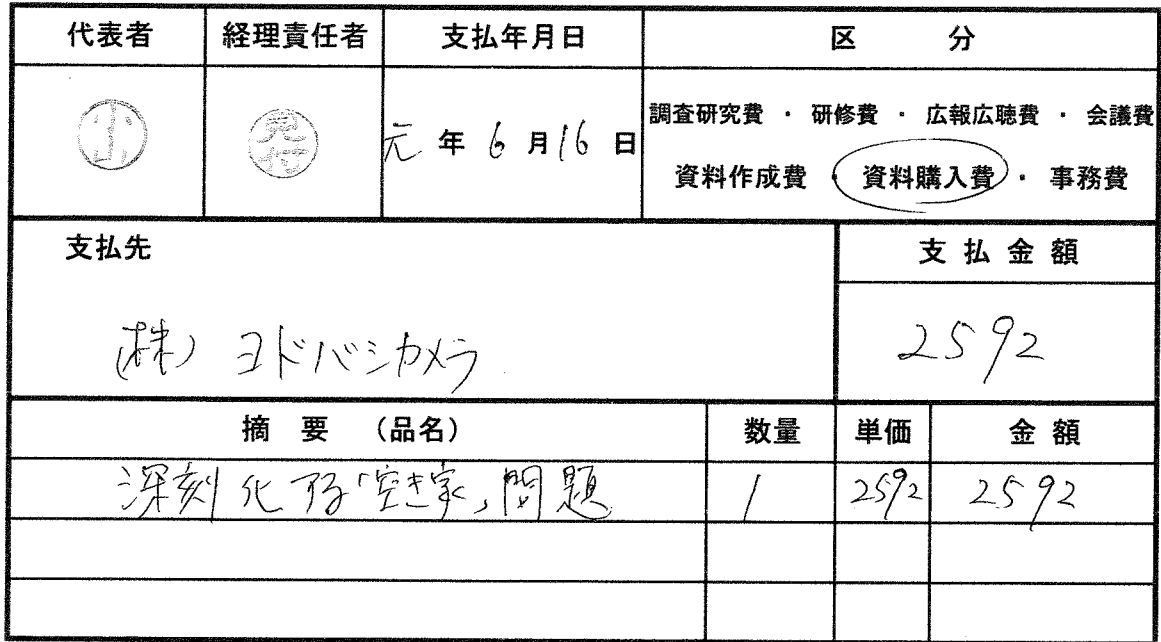 代表者 経理責任者 支払年月日 区 分
小山 見付 元年6月16日 調査研究費 ・ 研修費 ・ 広報広聴費 ・ 会議費
資料作成費 ・ 資料購入費 ・ 事務費
支払先 支払金額
(株) ヨドバシカメラ 2592
摘 要 (品名) 数量 単価 金額
深刻化する「空き家」問題 1 2592 2592